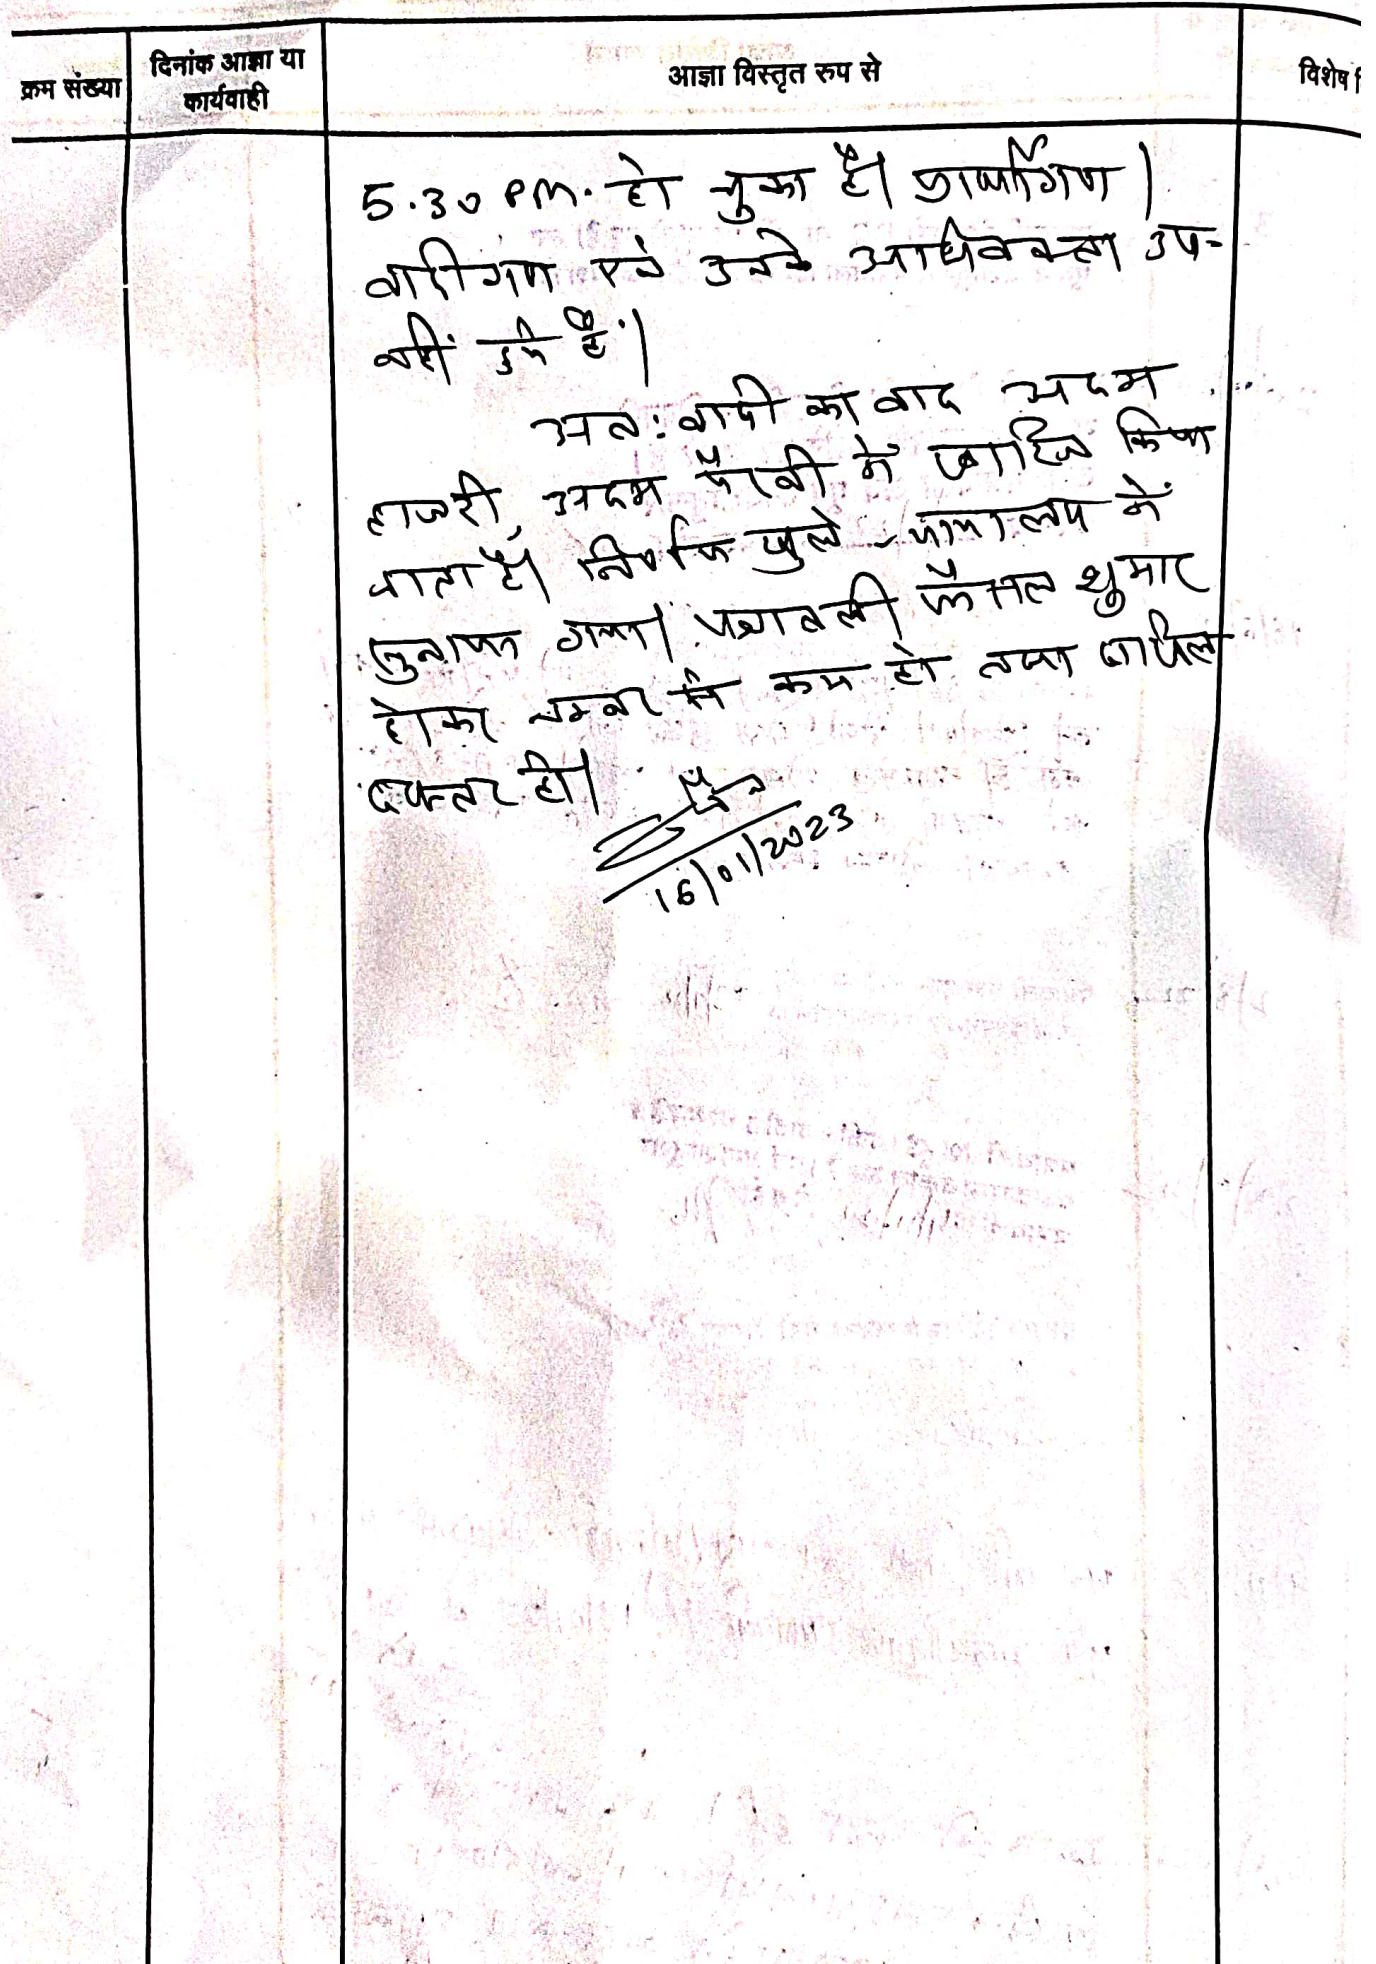 क्रम संख्या
दिनांक आज्ञा या
कार्यवाही
आज्ञा विस्तृत रुप से
विशेष
5.30 PM. हो चुका है। प्रार्थीगण /
वादीगण एवं उनके अधिवक्ता उप-
नहीं हुये हैं।
अतः वादी का वाद अदम
हाजरी, अदम पैरवी में खारिज किया
जाता है। निर्णय खुले न्यायालय में
सुनाया गया। पत्रावली फैसल शुमार
होकर नम्बर से कम हो तथा दाखिल
दफ्तर हो।
16/01/2023